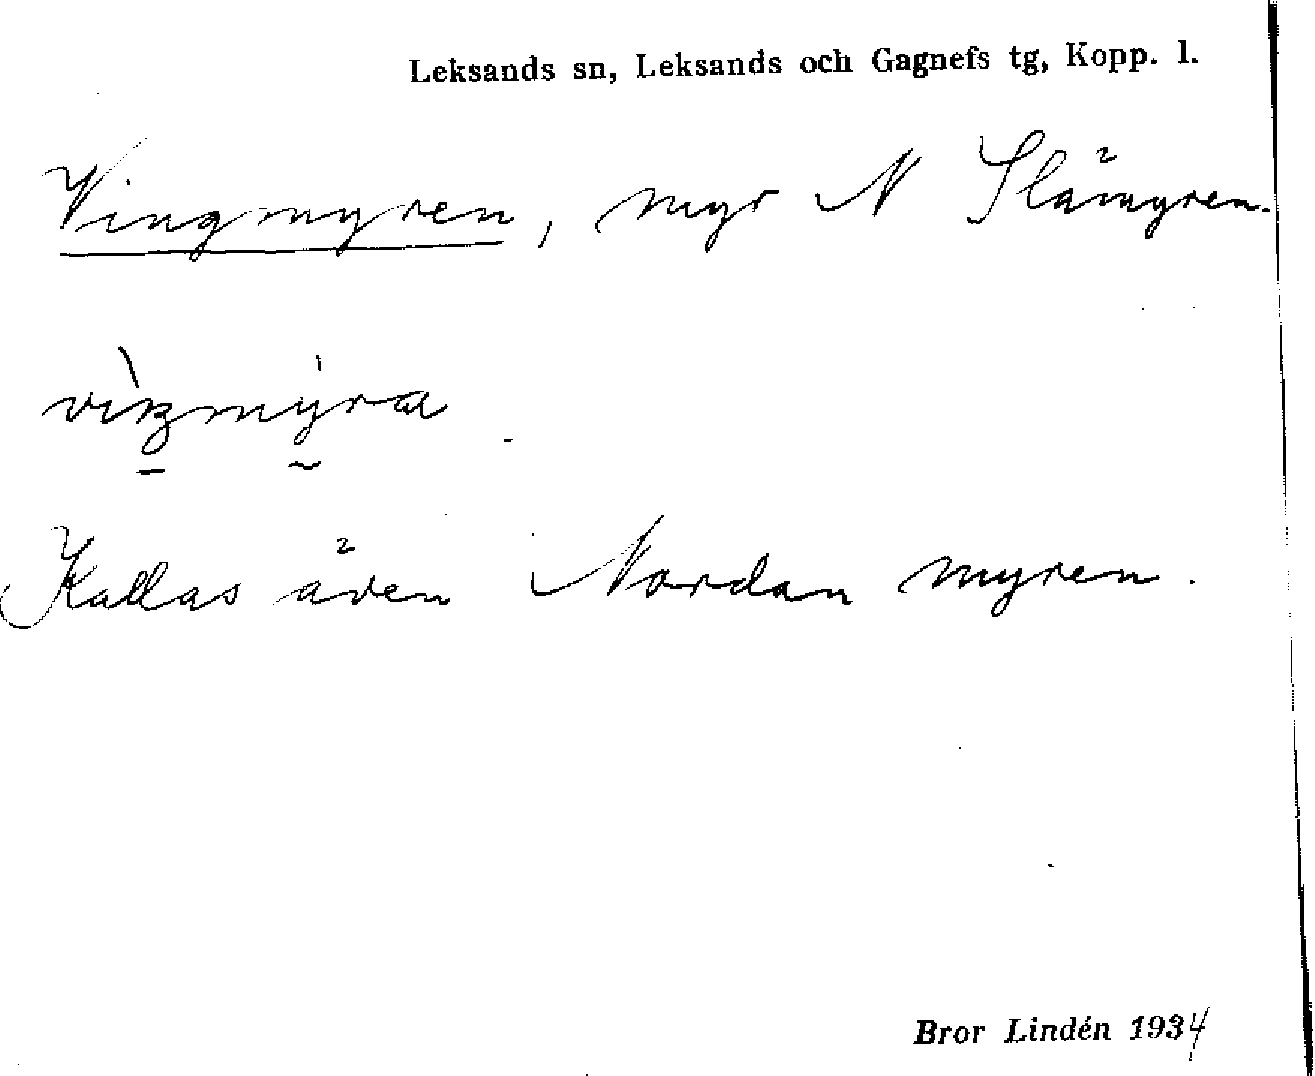 Leksands sn, Leksands och Gagnefs tg, Kopp. l.
Vingmyren, myr N Slämyren.
Kallas även Nordan myren.
Bror Lindén 1934